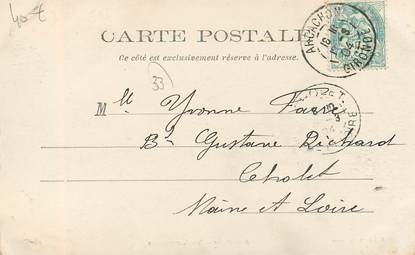 40 €
CARTE POSTALE
Ce côté est exclusivement réservé à l'adresse.
ARCACHON
04
GIRONDE
33
Mlle Yvonne Favre
Bd Gustave Richard
Cholet
Maine et Loire